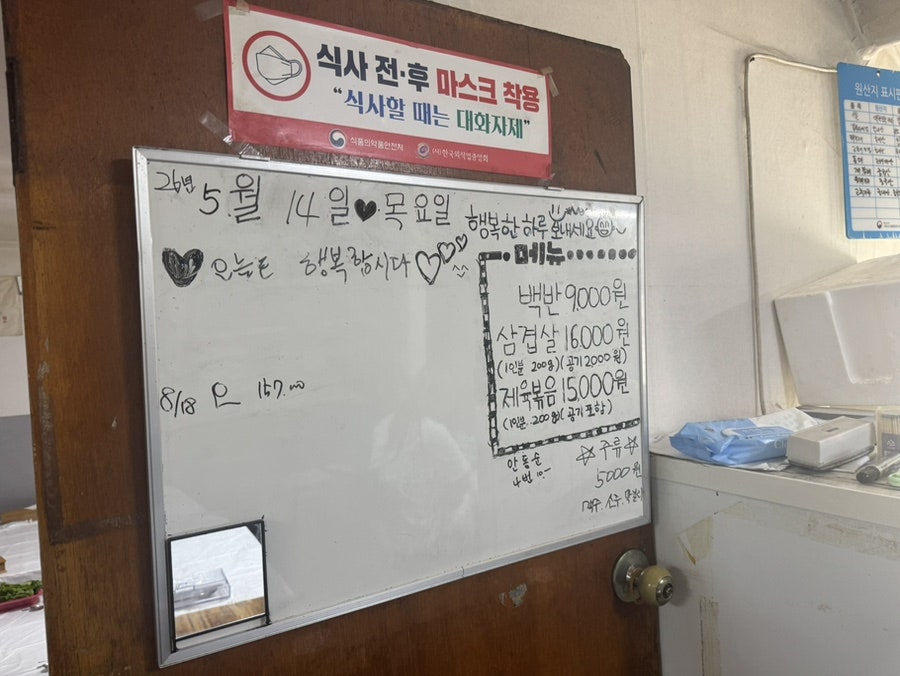 식사 전·후 마스크 착용
“식사할 때는 대화자제”
식품의약품안전처 (사)한국외식업중앙회
26년 5.월 14일♥목요일
행복한 하루 보내세요
오늘도 행복합시다
메뉴
백반 9,000원
삼겹살 16.000원
(1인분 200g)(공기 2,000원)
제육볶음 15,000원
(1인분 200g)(공기 포함)
8/18 157.000
안동순
4번 10.-
☆주류☆
5000원
맥주. 소주.
원산지 표시판
품목 원산지
쌀